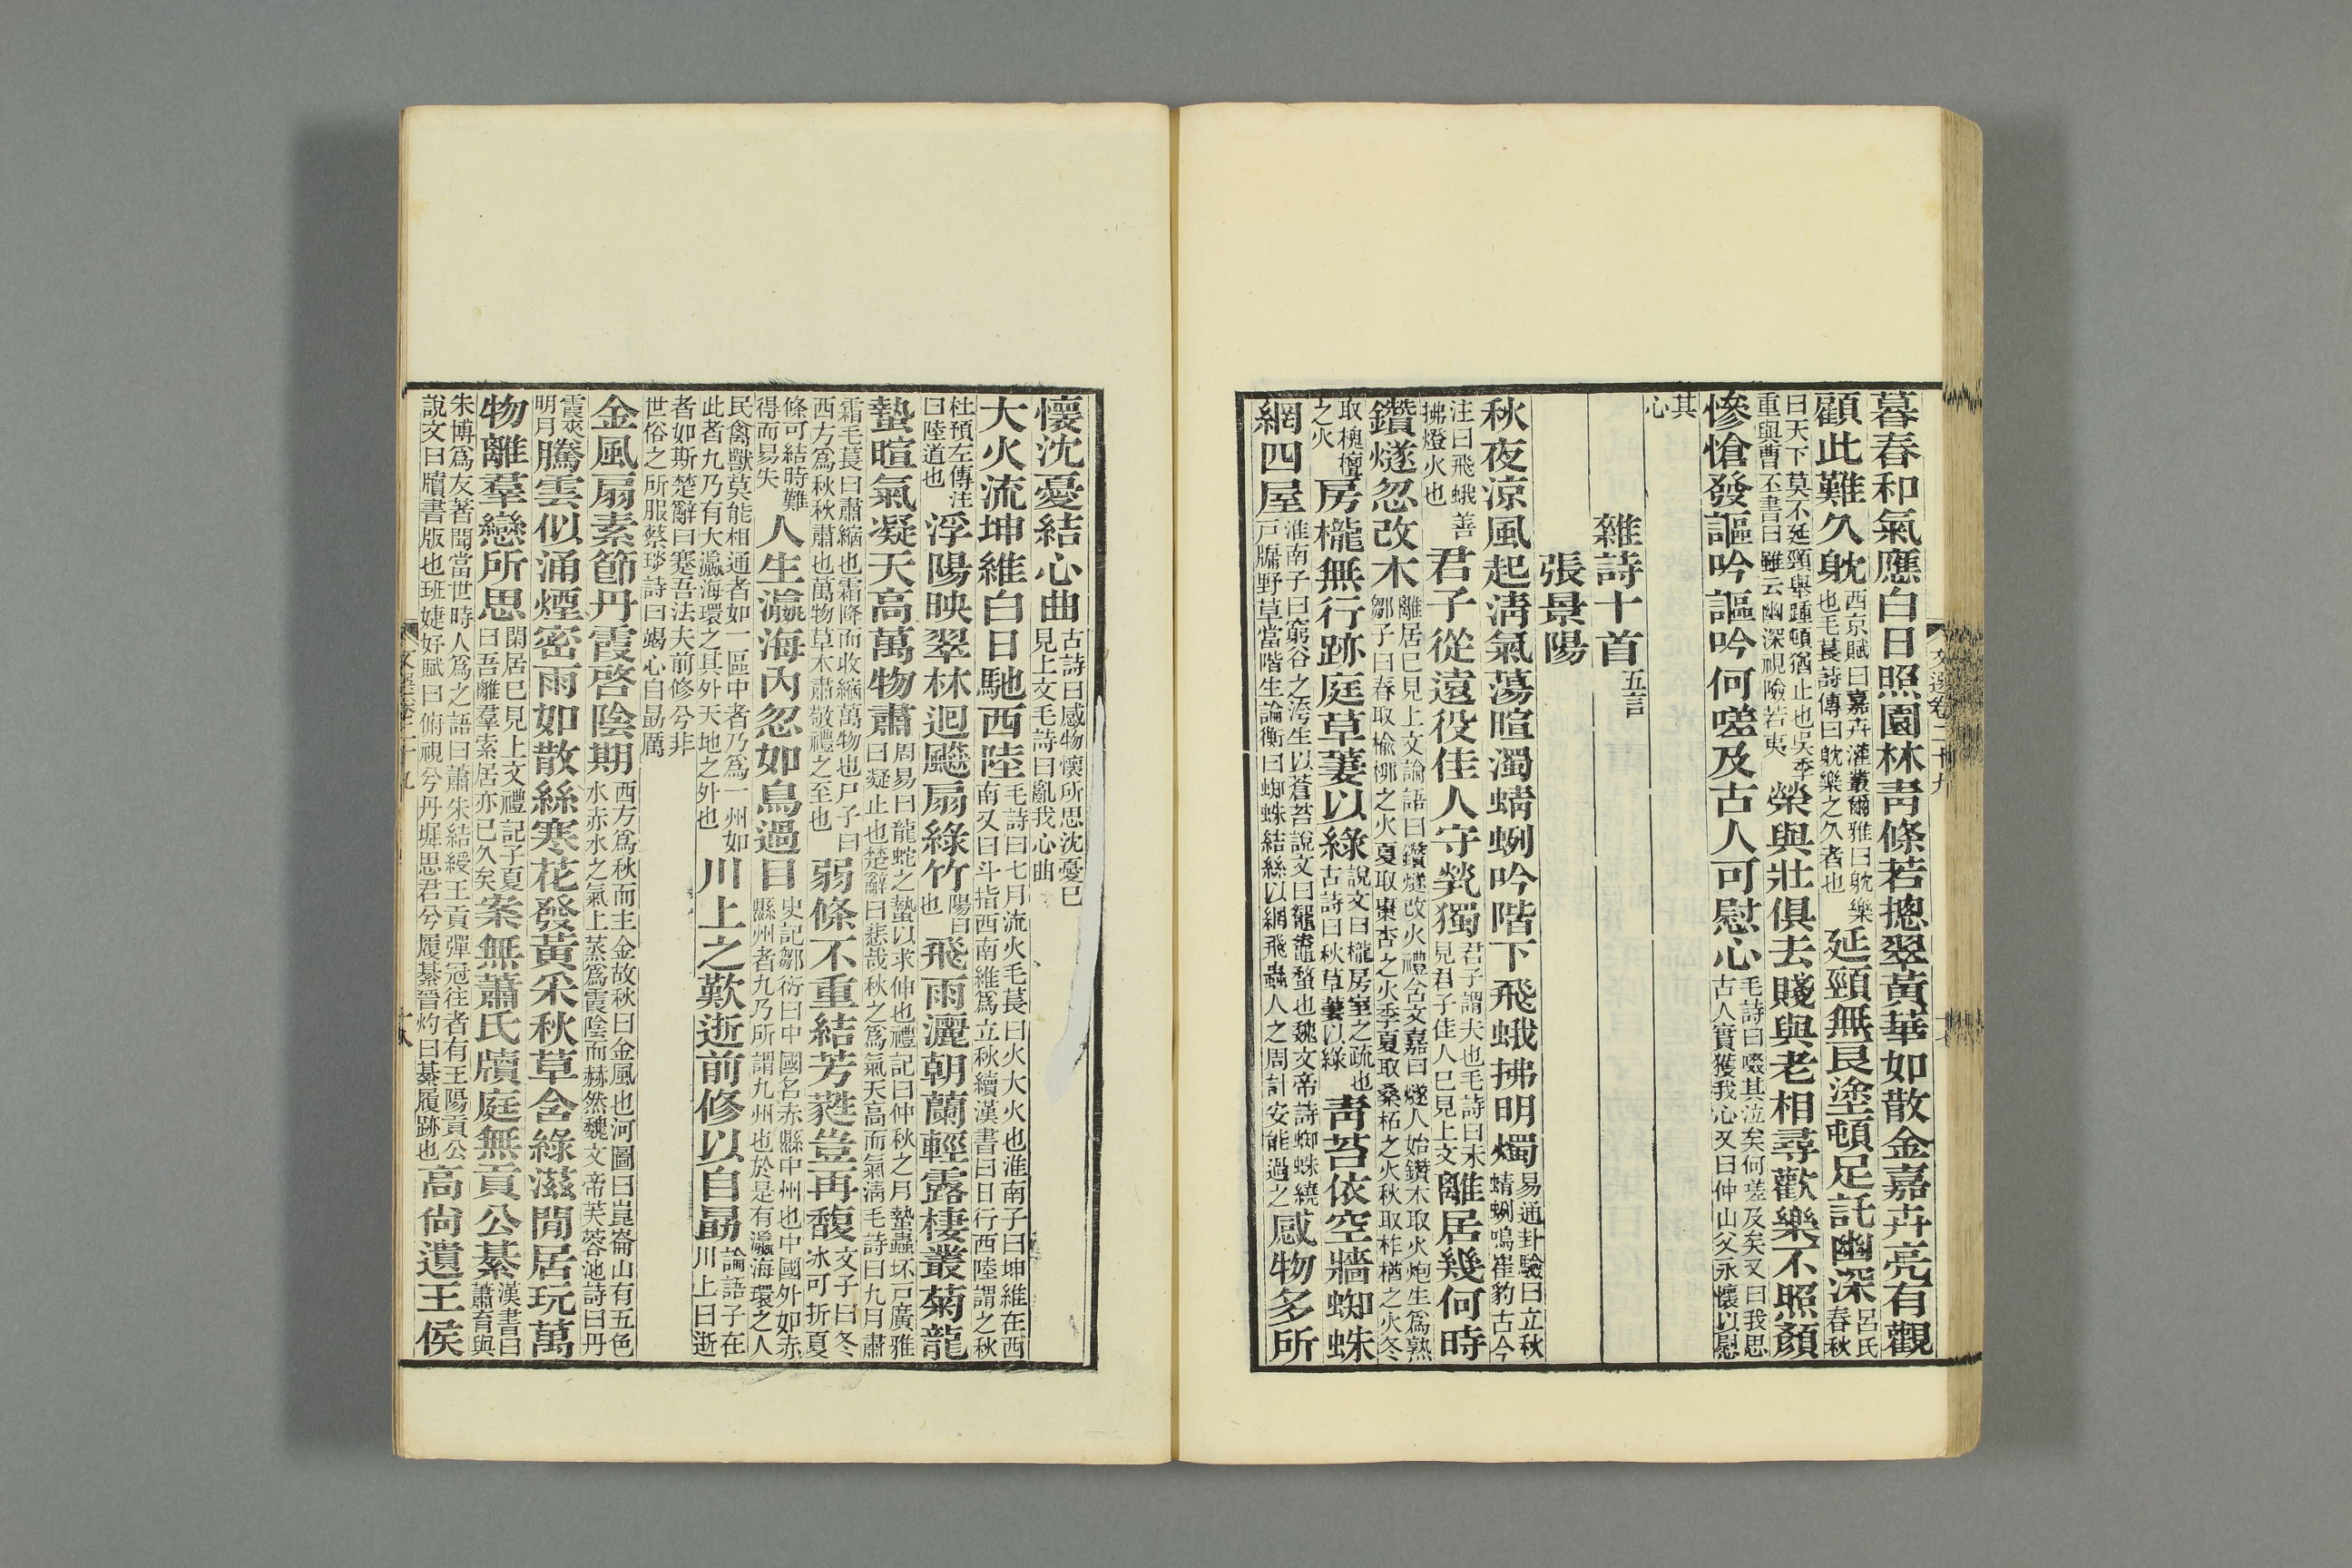 暮春和氣應白日照園林靑條若摠翠黃華如散金嘉卉亮有觀
顧此難久躭西京賦曰嘉卉灌叢爾雅曰躭樂也毛萇詩傳曰躭樂之久者也延頸無良塗頓足託幽深呂氏春秋
曰天下莫不延頸舉踵頓猶止也吳季重與曹丕書曰雖云幽深視險若夷榮與壯俱去賤與老相尋歡樂不照顏
慘愴發謳吟謳吟何嗟及古人可慰心毛詩曰啜其泣矣何嗟及矣又曰我思古人實獲我心又曰仲山父永懷以慰
其心
雜詩十首五言
張景陽
秋夜涼風起淸氣蕩暄濁蜻蛚吟階下飛蛾拂明燭易通卦驗曰立秋蜻蛚鳴崔豹古今
注曰飛蛾善拂燈火也君子從遠役佳人守煢獨君子謂夫也毛詩曰未見君子佳人已見上文離居幾何時
鑽燧忽改木離居已見上文論語曰鑽燧改火禮含文嘉曰燧人始鑽木取火炮生爲熟鄒子曰春取楡柳之火夏取棗杏之火季夏取桑柘之火秋取柞楢之火冬
取槐檀之火房櫳無行跡庭草萋以綠說文曰櫳房室之疏也古詩曰秋草萋以綠靑苔依空牆蜘蛛
網四屋淮南子曰窮谷之洿生以蒼苔說文曰鼅鼄蝥也魏文帝詩蜘蛛繞戶牖野草當階生論衡曰蜘蛛結絲以網飛蟲人之周計安能過之感物多所
文選卷二十九
懷沈憂結心曲古詩曰感物懷所思沈憂已見上文毛詩曰亂我心曲
大火流坤維白日馳西陸毛詩曰七月流火毛萇曰火大火也淮南子曰坤維在西南又曰斗指西南維爲立秋續漢書曰日行西陸謂之秋
杜預左傳注曰陸道也浮陽映翠林迴飈扇綠竹陽日也飛雨灑朝蘭輕露棲叢菊龍
蟄暄氣凝天高萬物肅周易曰龍蛇之蟄以求伸也禮記曰仲秋之月蟄蟲坏戶廣雅曰凝止也楚辭曰悲哉秋之爲氣天高而氣淸毛詩曰九月肅
霜毛萇曰肅縮也霜降而收縮萬物也尸子曰西方爲秋秋肅也萬物草木肅敬禮之至也弱條不重結芳蕤豈再馥文子曰冬冰可折夏
條可結時難得而易失人生瀛海內忽如鳥過目史記鄒衍曰中國名赤縣中州也中國外如赤縣州者九乃所謂九州也於是有瀛海環之人
民禽獸莫能相通者如一區中者乃爲一州如此者九乃有大瀛海環之其外天地之外也川上之歎逝前修以自勗論語子在川上曰逝
者如斯楚辭曰蹇吾法夫前修兮非世俗之所服蔡琰詩曰竭心自勗厲
金風扇素節丹霞啓陰期西方爲秋而主金故秋曰金風也河圖曰崑崙山有五色水赤水之氣上蒸爲霞陰而赫然魏文帝芙蓉池詩曰丹
霞夾明月騰雲似涌煙密雨如散絲寒花發黃采秋草含綠滋閒居玩萬
物離羣戀所思閑居已見上文禮記子夏曰吾離羣索居亦已久矣案無蕭氏牘庭無貢公綦漢書曰蕭育與
朱博爲友著聞當世時人爲之語曰蕭朱結綬王貢彈冠往者有王陽貢公說文曰牘書版也班婕妤賦曰俯視兮丹墀思君兮履綦晉灼曰綦履跡也高尙遺王侯